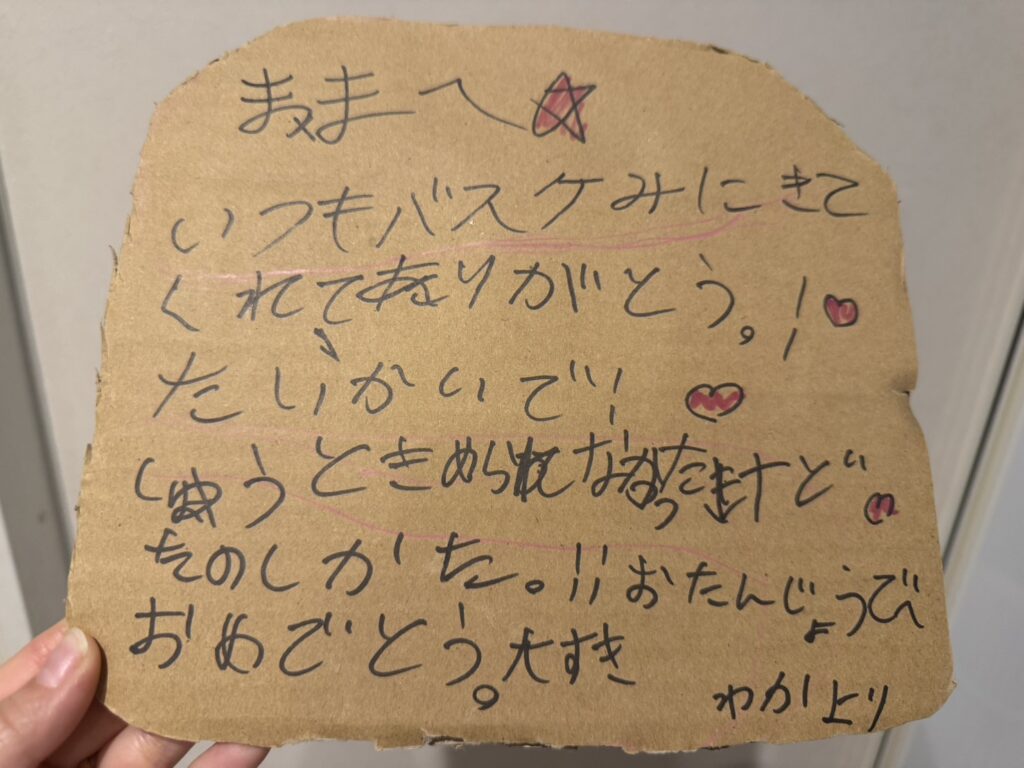 ままへ
いつもバスケみにきて
くれてありがとう。！
たいかいで！
しゅうときめられなかったけど
たのしかた。!!おたんじょうでべ
おめでとう。大すき
わかより